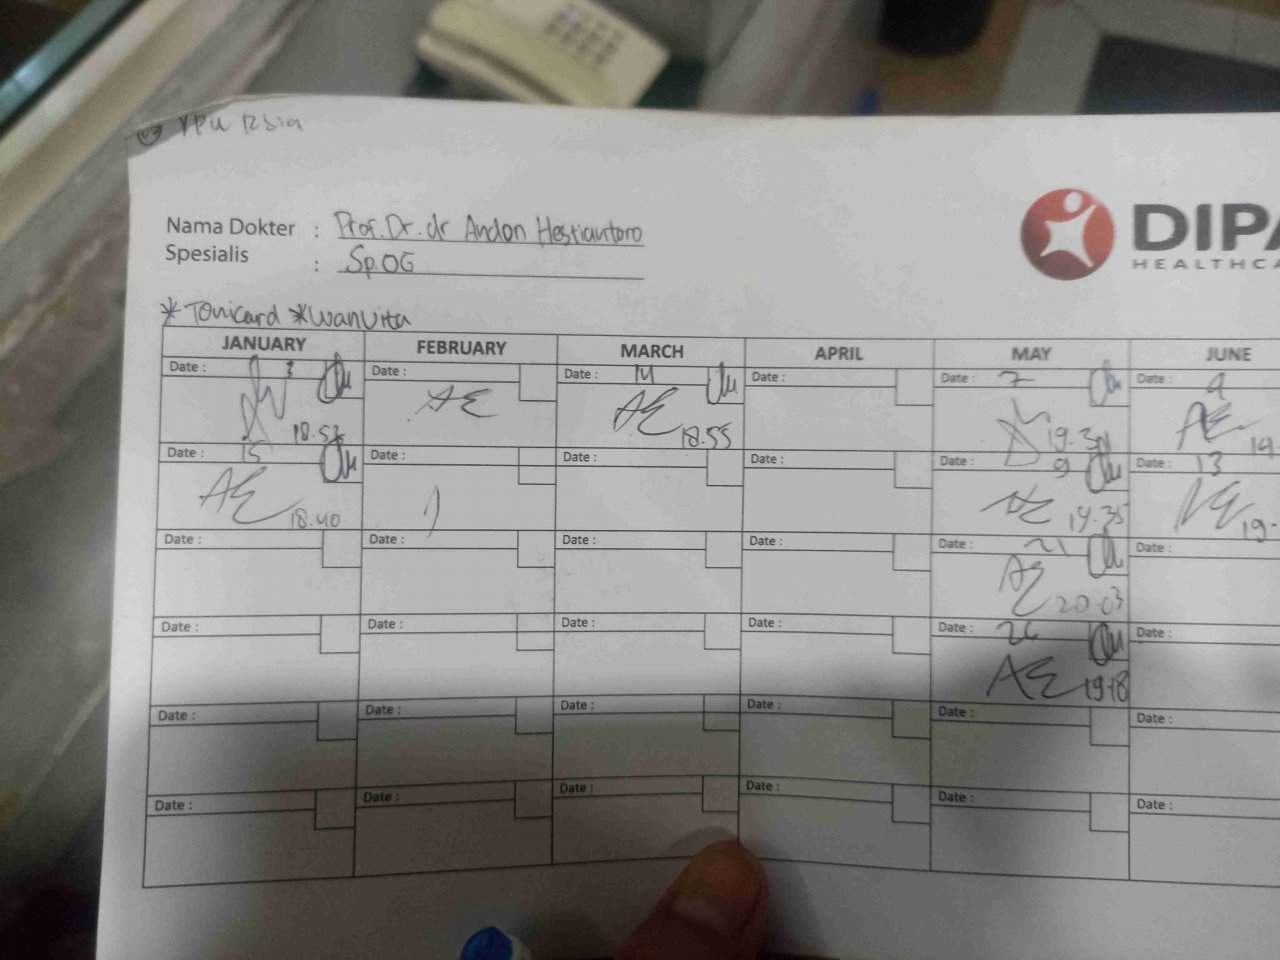 YPU RSIA
Nama Dokter : Prof. Dr. dr Andon Hestiantoro
Spesialis : Sp.OG
DIPA
HEALTHCA
*Tonicard *Wanvita
JANUARY FEBRUARY MARCH APRIL MAY JUNE
Date : 3 Date : Date : 14 Date : Date : 7 Date : 9
18.55 19.
Date : 15 Date : Date : Date : Date : 9 Date : 13
18.40 19.35 19.
Date : Date : Date : Date : Date : 21 Date :
20.03
Date : Date : Date : Date : Date : 26 Date :
19.18
Date : Date : Date : Date : Date : Date :
Date : Date : Date : Date : Date : Date :